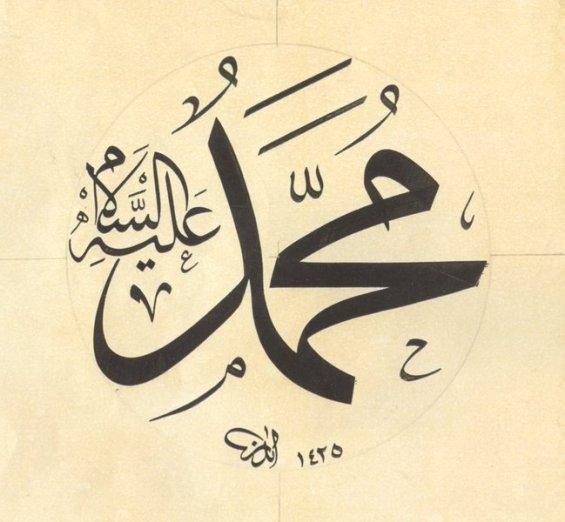 مُحَمَّدٌ
عَلَيْهِ السَّلَام
١٤٢٥